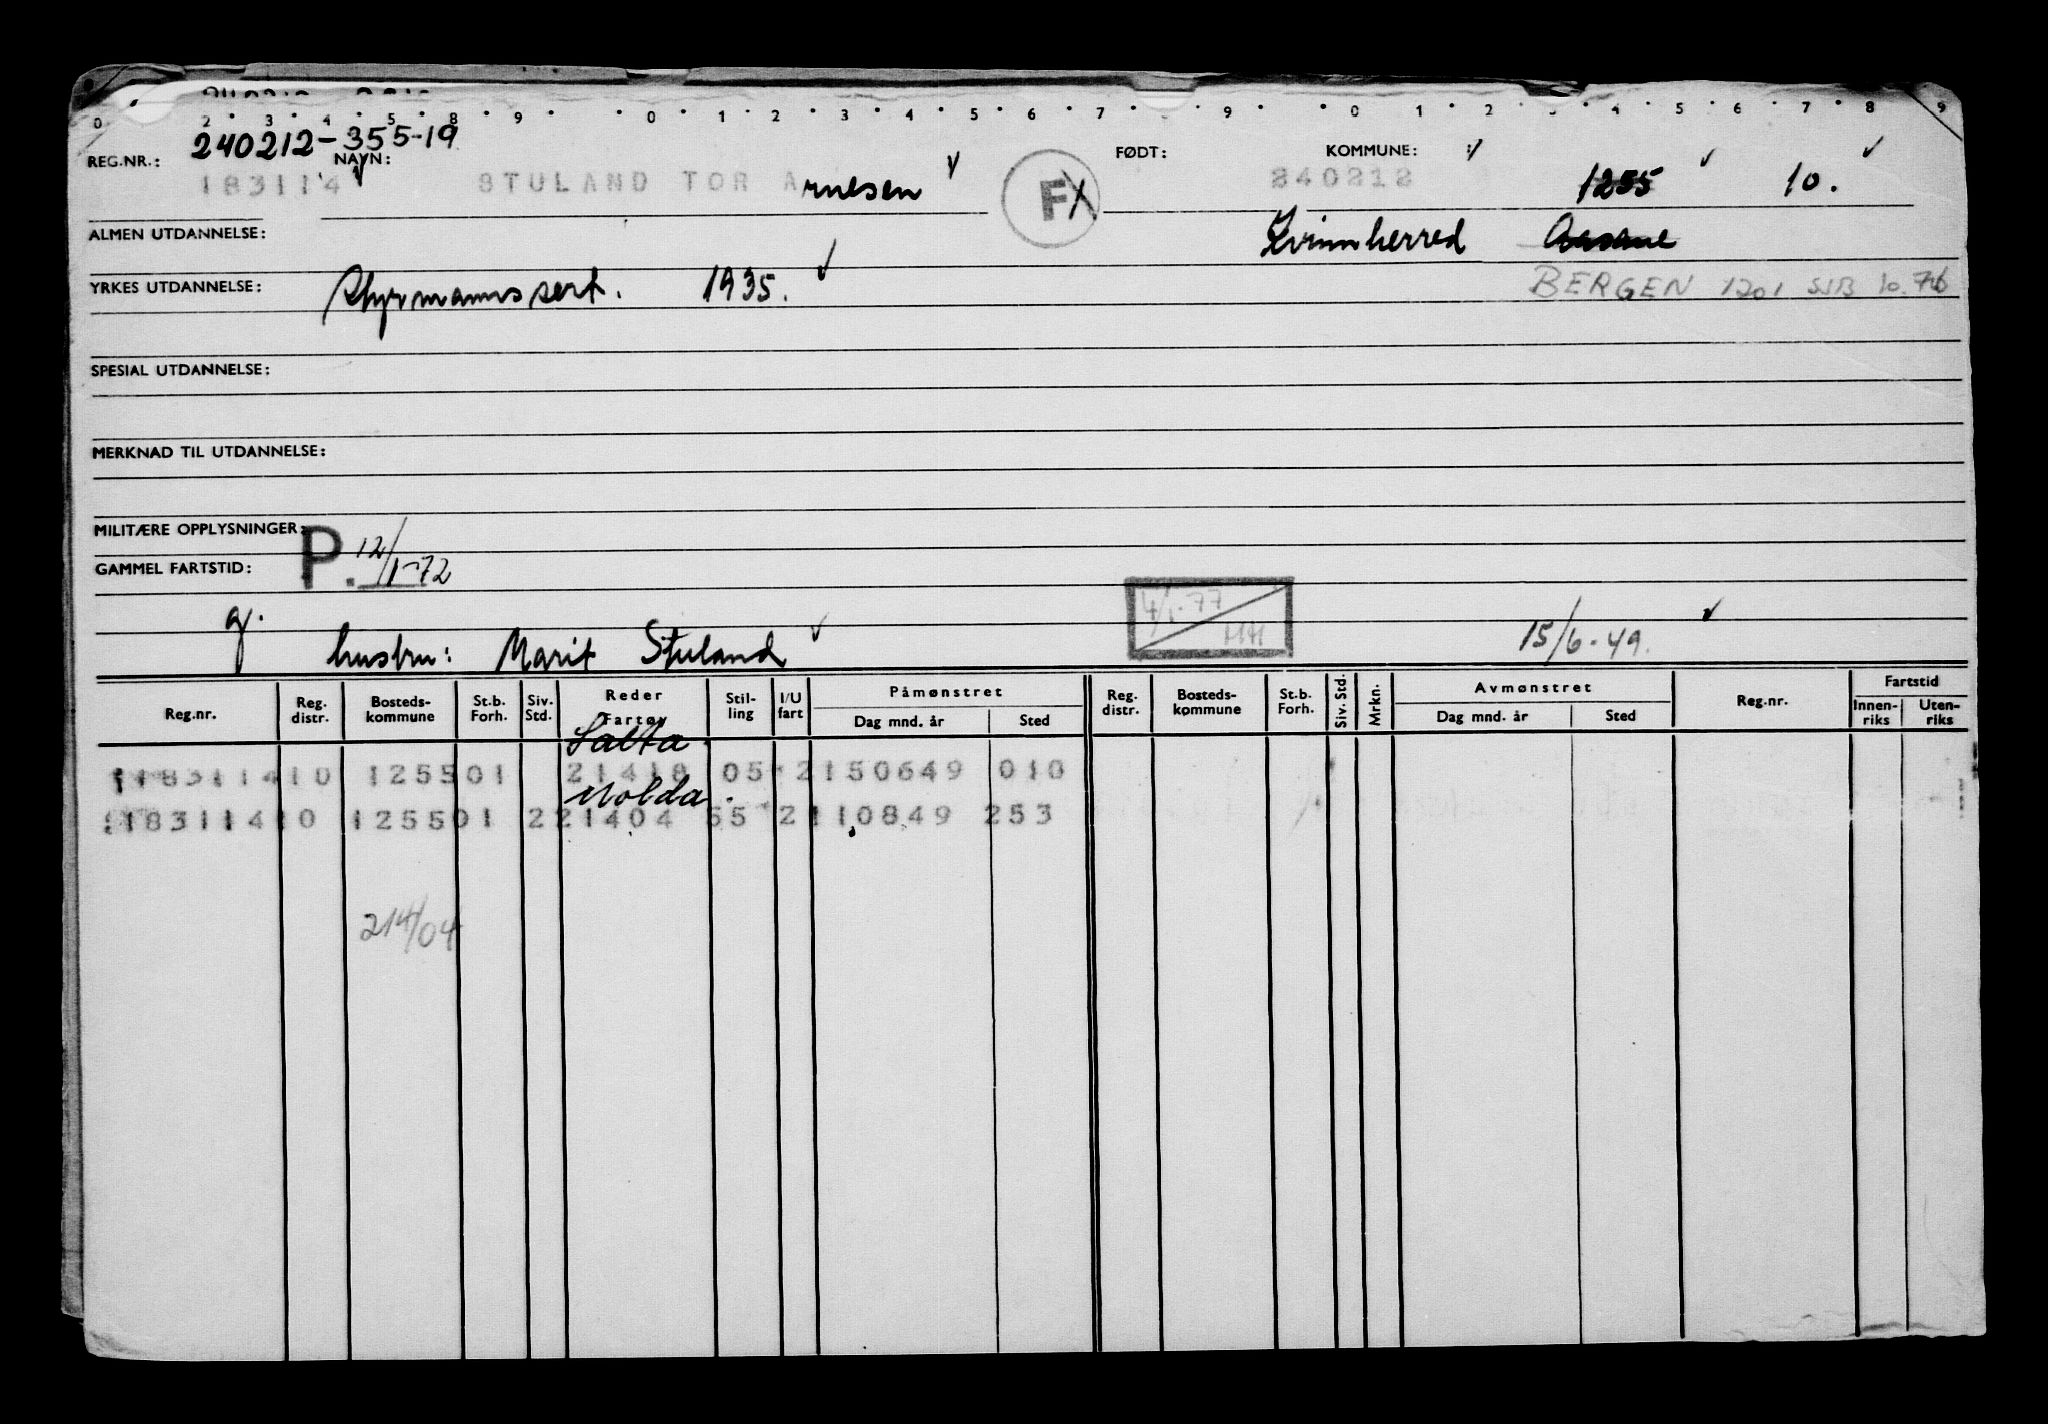 0 2 3 4 5 8 9 0 1 2 3 4 5 6 7 9 0 1 2 3 4 5 6 7 8 9
240212-355-19
REG.NR.: NAVN: FØDT: KOMMUNE:
183114 STULAND TOR Arnesen F 240212 1255 10.
ALMEN UTDANNELSE: Kvinnherred Aasane
YRKES UTDANNELSE: Styrmannssert. 1935. BERGEN 1201 SJB 10.76
SPESIAL UTDANNELSE:
MERKNAD TIL UTDANNELSE:
MILITÆRE OPPLYSNINGER:
GAMMEL FARTSTID: P. 12/1-72
g. 4/1-77 HH
hustru: Marit Stuland 15/6-49.
Reg.nr. Reg. distr. Bosteds-kommune St.b. Forh. Siv. Std. Reder Fartøy Stil-ling I/U fart Påmønstret Dag mnd. år Sted Reg. distr. Bosteds-kommune St.b. Forh. Siv. Std. Mrkn. Avmønstret Dag mnd. år Sted Reg.nr. Fartstid Innen-riks Uten-riks
Salta
183114 10 1255 01 21418 05 2 150649 010
Molda.
183114 10 1255 01 2 21404 55 2 110849 253
214/04